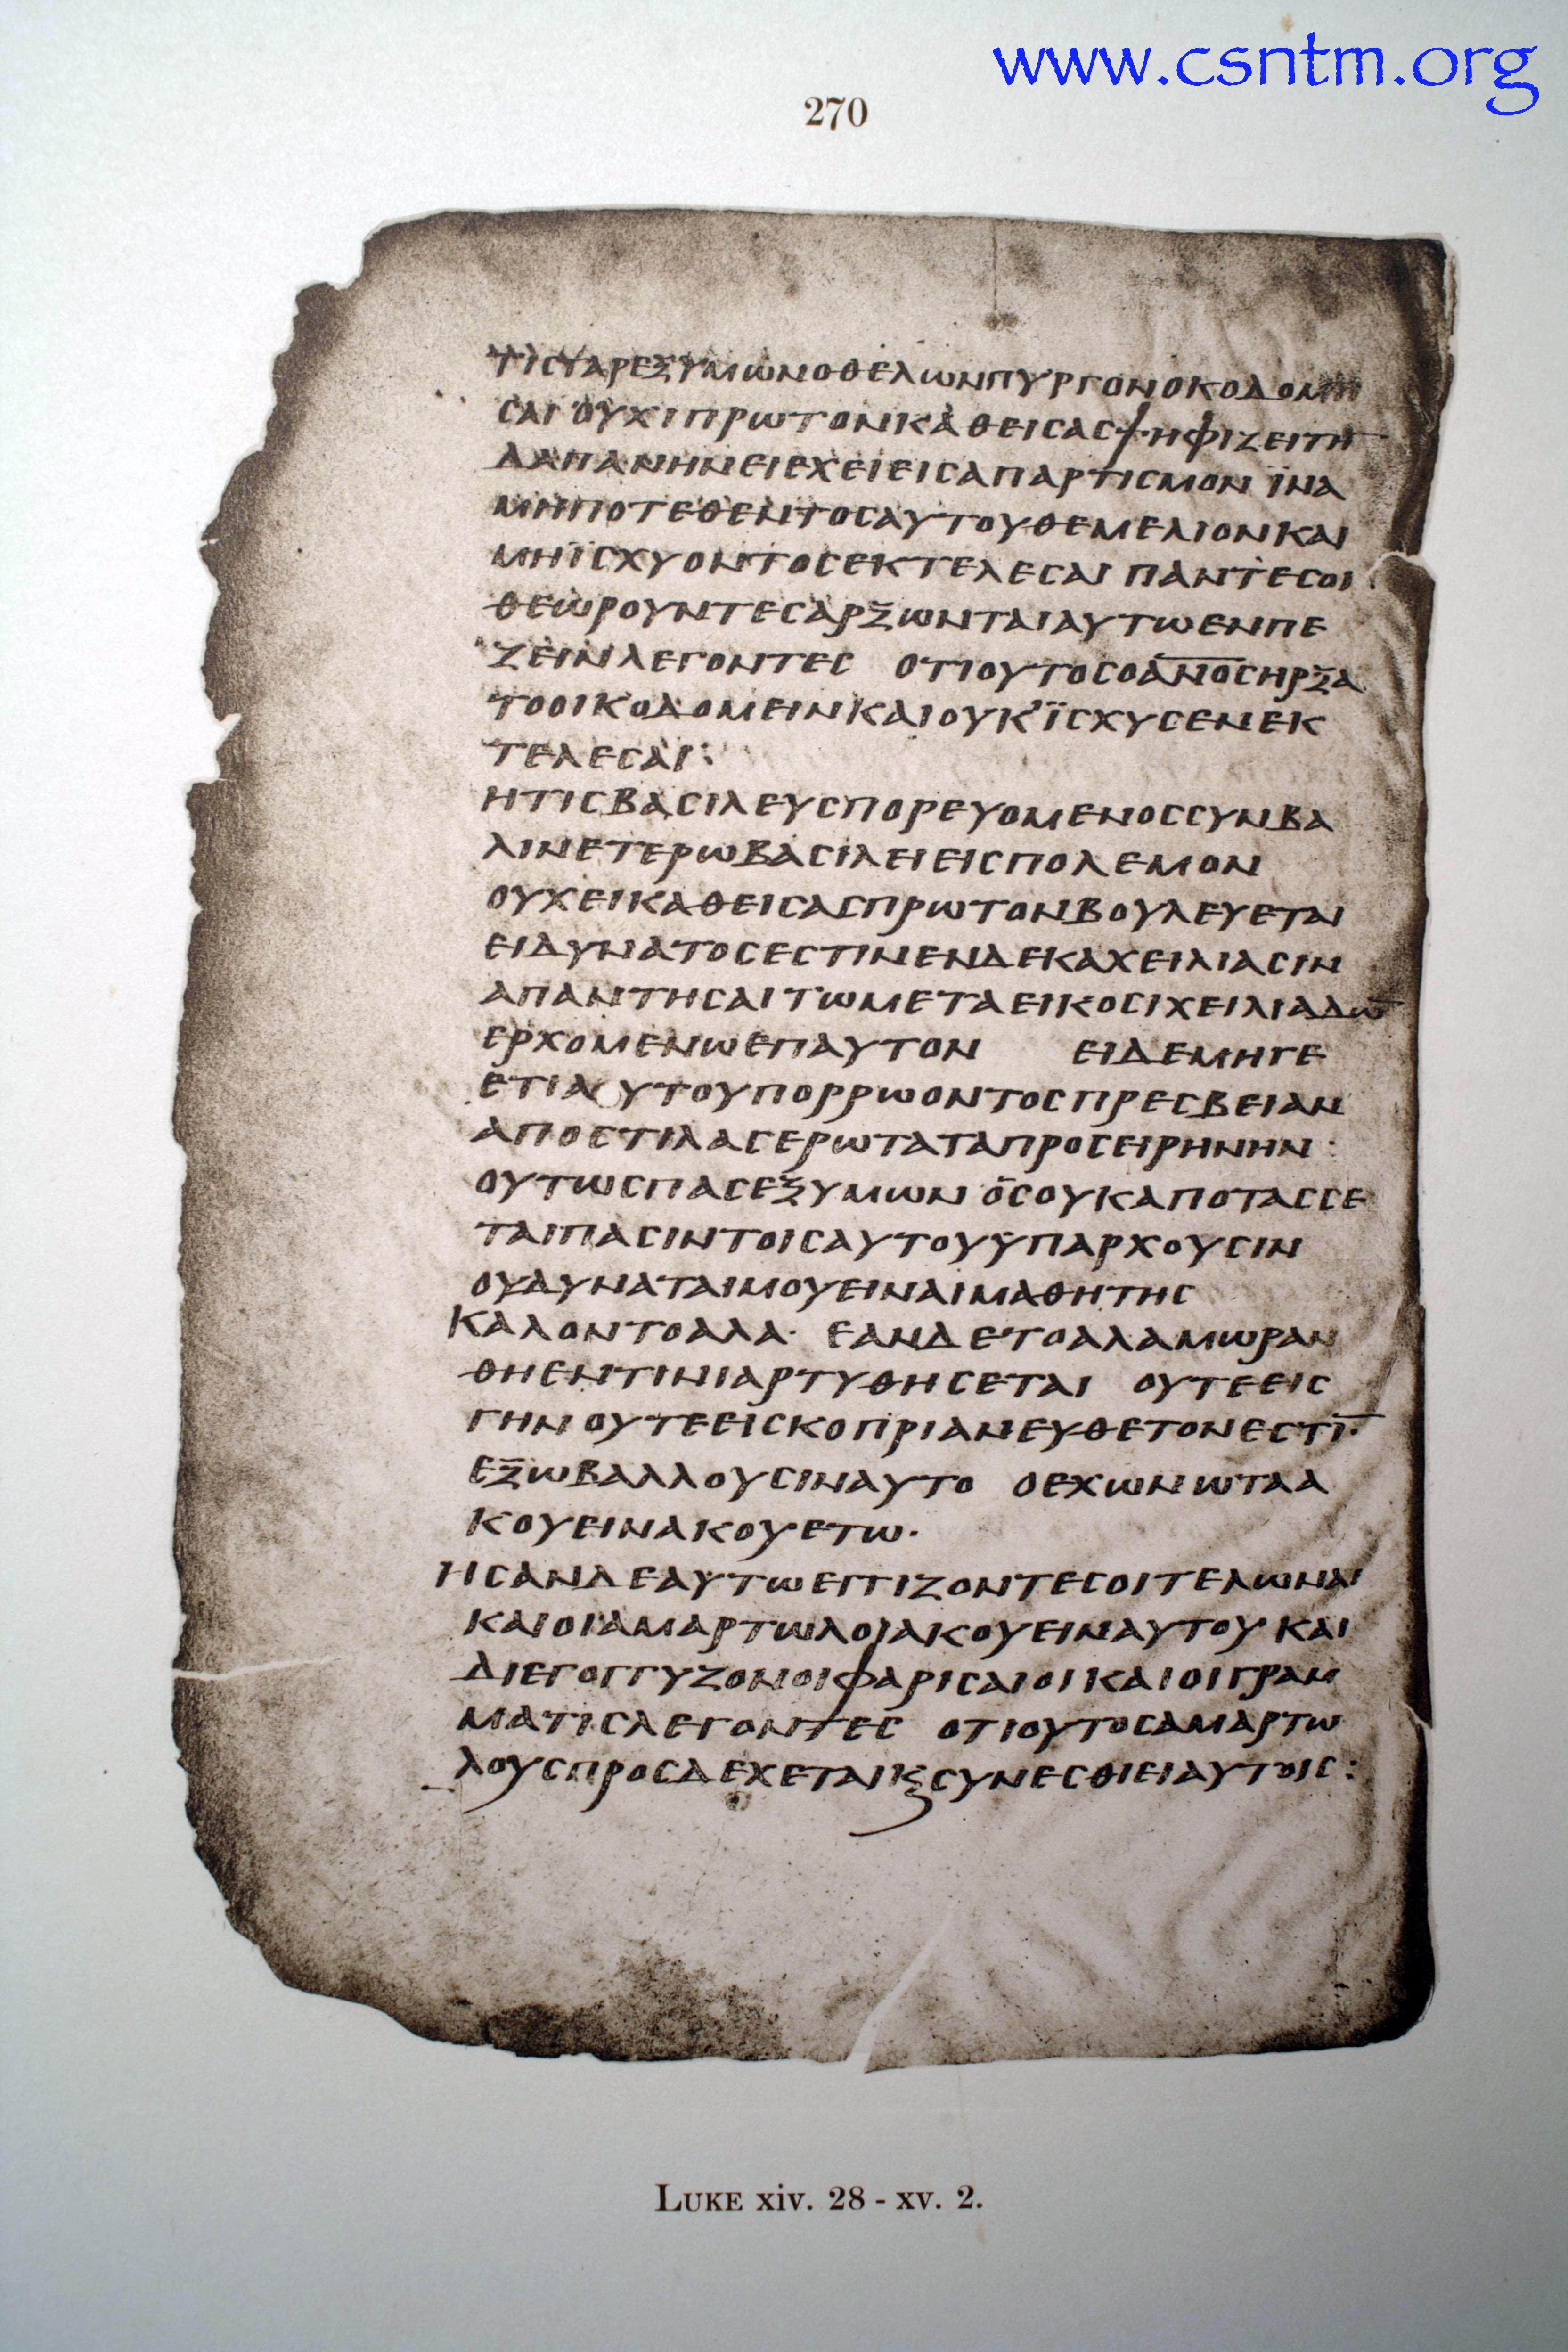 www.csntm.org
270
ΤΙСΓΑΡΕΞΥΜѠΝΟΘΕΛѠΝΠΥΡΓΟΝΟΚΟΔΟΜΗ
СΑΙ ΟΥΧΙΠΡѠΤΟΝΚΑΘΕΙСΑСΨΗΦΙΖΕΙΤΗ̅
ΔΑΠΑΝΗΝΕΙΕΧΕΙΕΙСΑΠΑΡΤΙСΜΟΝ ΪΝΑ
ΜΗΠΟΤΕΘΕΝΤΟСΑΥΤΟΥΘΕΜΕΛΙΟΝΚΑΙ
ΜΗΪСΧΥΟΝΤΟСΕΚΤΕΛΕСΑΙ ΠΑΝΤΕСΟΙ
ΘΕѠΡΟΥΝΤΕСΑΡΞѠΝΤΑΙΑΥΤѠΕΝΠΕ
ΖΕΙΝΛΕΓΟΝΤΕС ΟΤΙΟΥΤΟСΟΑ̅Ν̅Ο̅С̅ΗΡΞΑ
ΤΟΟΙΚΟΔΟΜΕΙΝΚΑΙΟΥΚ'ΪСΧΥСΕΝΕΚ
ΤΕΛΕСΑΙ:
ΗΤΙСΒΑСΙΛΕΥСΠΟΡΕΥΟΜΕΝΟССΥΝΒΑ
ΛΙΝΕΤΕΡѠΒΑСΙΛΕΙΕΙСΠΟΛΕΜΟΝ
ΟΥΧΕΙΚΑΘΕΙСΑСΠΡѠΤΟΝΒΟΥΛΕΥΕΤΑΙ
ΕΙΔΥΝΑΤΟСΕСΤΙΝΕΝΔΕΚΑΧΕΙΛΙΑСΙΝ
ΑΠΑΝΤΗСΑΙΤѠΜΕΤΑΕΙΚΟСΙΧΕΙΛΙΑΔѠ̅
ΕΡΧΟΜΕΝѠΕΠΑΥΤΟΝ ΕΙΔΕΜΗΓΕ
ΕΤΙΑΥΤΟΥΠΟΡΡѠΟΝΤΟСΠΡΕСΒΕΙΑΝ
ΑΠΟСΤΙΛΑСΕΡѠΤΑΤΑΠΡΟСΕΙΡΗΝΗΝ:
ΟΥΤѠСΠΑСΕΞΥΜѠΝ ΟСΟΥΚΑΠΟΤΑССΕ
ΤΑΙΠΑСΙΝΤΟΙСΑΥΤΟΥΫΠΑΡΧΟΥСΙΝ
ΟΥΔΥΝΑΤΑΙΜΟΥΕΙΝΑΙΜΑΘΗΤΗС
ΚΑΛΟΝΤΟΑΛΑ· ΕΑΝΔΕΤΟΑΛΑΜѠΡΑΝ
ΘΗΕΝΤΙΝΙΑΡΤΥΘΗСΕΤΑΙ ΟΥΤΕΕΙС
ΓΗΝΟΥΤΕΕΙСΚΟΠΡΙΑΝΕΥΘΕΤΟΝΕСΤΙ̅·
ΕΞѠΒΑΛΛΟΥСΙΝΑΥΤΟ ΟΕΧѠΝѠΤΑΑ
ΚΟΥΕΙΝΑΚΟΥΕΤѠ·
ΗСΑΝΔΕΑΥΤѠΕΓΓΙΖΟΝΤΕСΟΙΤΕΛѠΝΑΙ
ΚΑΙΟΙΑΜΑΡΤѠΛΟΙΑΚΟΥΕΙΝΑΥΤΟΥ ΚΑΙ
ΔΙΕΓΟΓΓΥΖΟΝΟΙΦΑΡΙСΑΙΟΙΚΑΙΟΙΓΡΑΜ
ΜΑΤΙСΛΕΓΟΝΤΕС ΟΤΙΟΥΤΟСΑΜΑΡΤѠ
ΛΟΥСΠΡΟСΔΕΧΕΤΑΙΚϚСΥΝΕСΘΙΕΙΑΥΤΟΙС:
LUKE xiv. 28 - xv. 2.